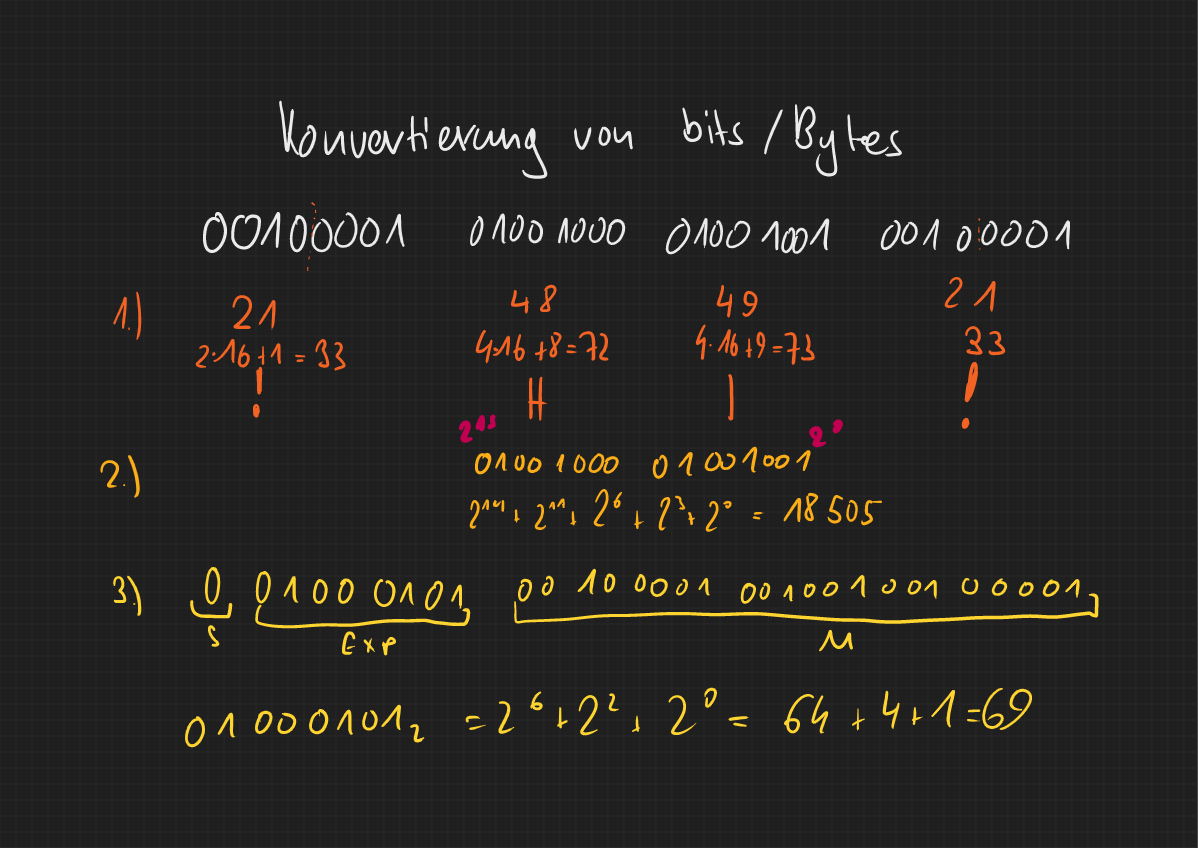 Konvertierung von bits / Bytes
00100001 01001000 01001001 00100001
1.) 21 48 49 21
2·16+1 = 33 4·16+8=72 4·16+9=73 33
! H I !
2¹⁵ 2⁰
2.) 01001000 01001001
2¹⁴ + 2¹¹ + 2⁶ + 2³ + 2⁰ = 18505
3.) 0 01000101 00100001 001001001 00001
S Exp M
01000101₂ = 2⁶ + 2² + 2⁰ = 64 + 4 + 1 = 69